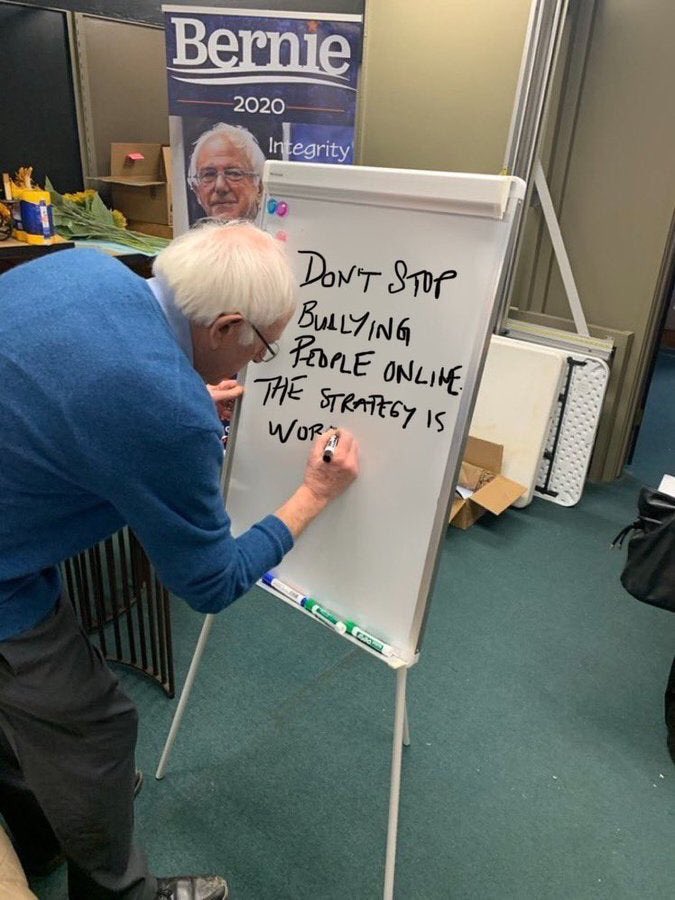 Bernie
2020
Integrity
DON'T STOP
BULLYING
PEOPLE ONLINE.
THE STRATEGY IS
WOR